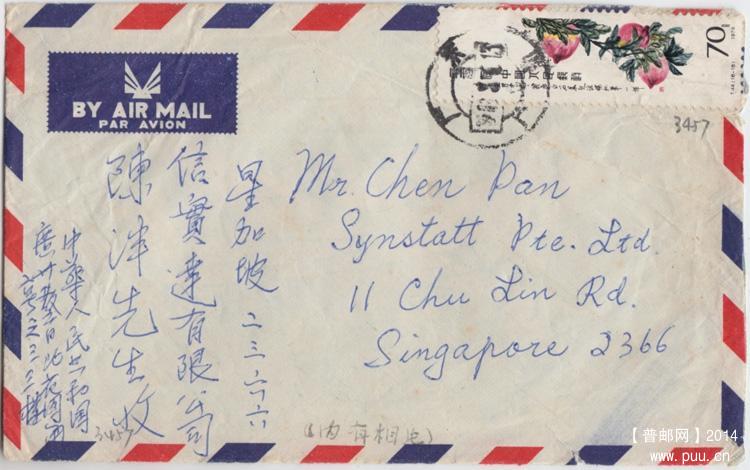 BY AIR MAIL
PAR AVION
70分
中国人民邮政
3457
Mr. Chen Pan
Synstatt Pte. Ltd.
11 Chu Lin Rd.
Singapore 2366
星加坡 二三六六
信實達有限公司
陳泮先生收
中華人民共和国
3457
(内有相片)
【普邮网】2014
www.puu.cn